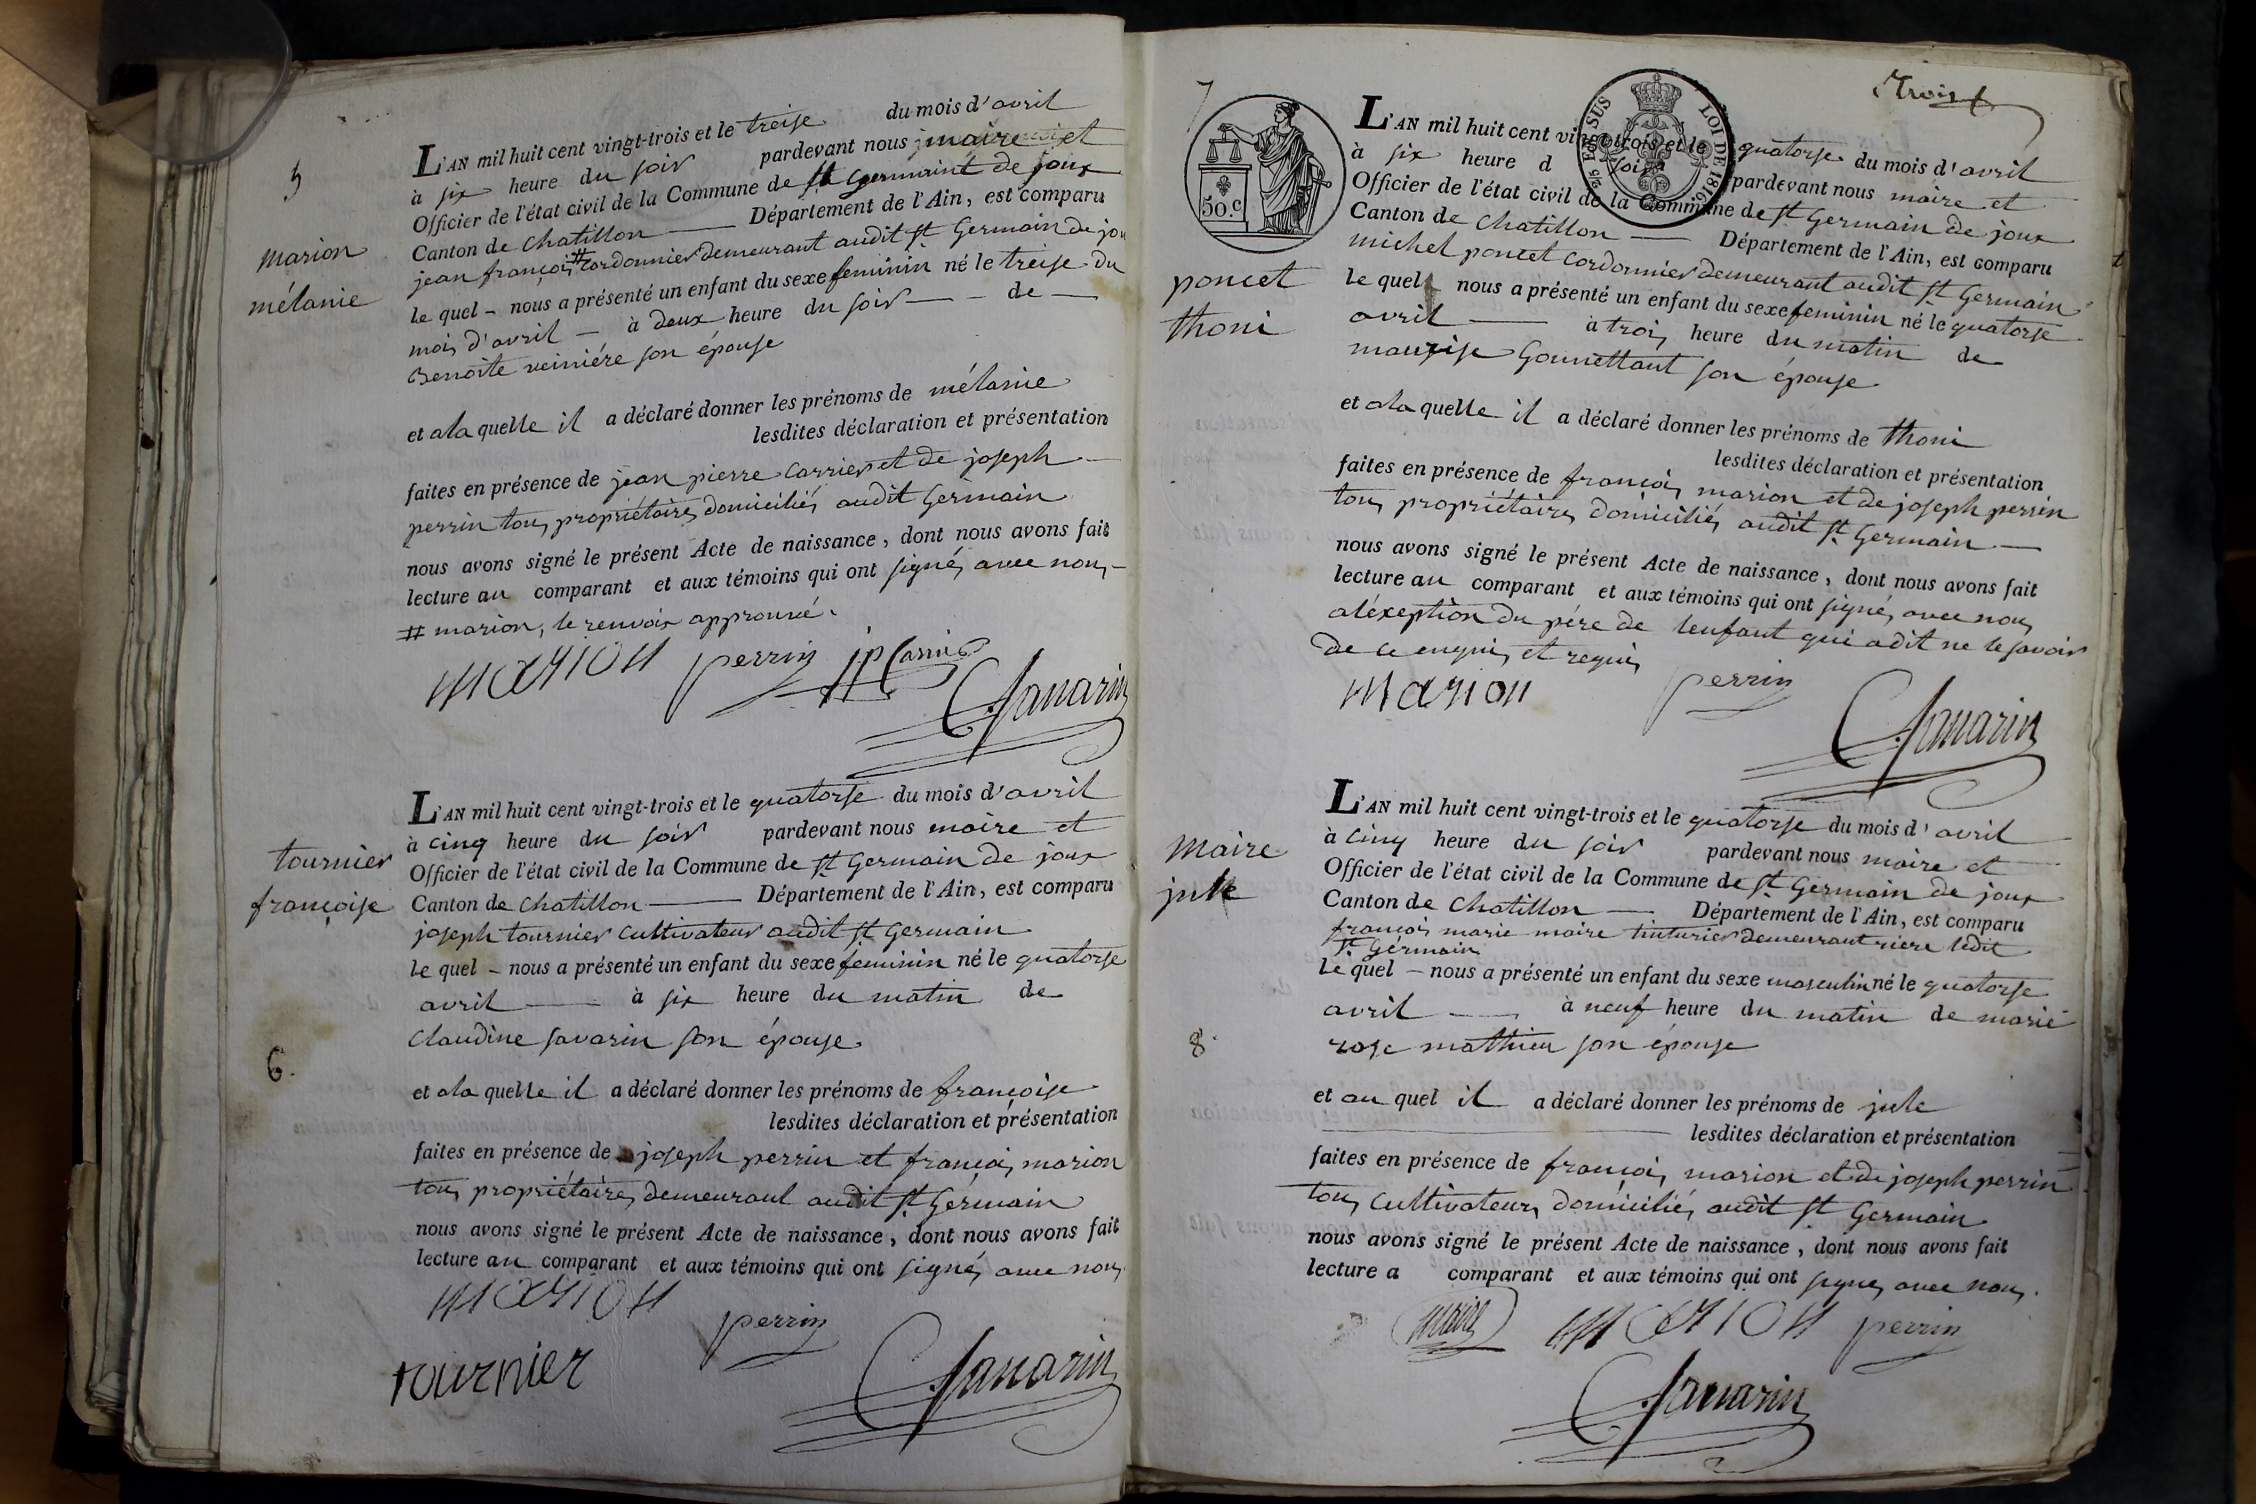 5
marion
mélanie
L'AN mil huit cent vingt-trois et le treise du mois d'avril
à six heure du soir pardevant nous maire et
Officier de l'état civil de la Commune de st germaint de joux
Canton de chatillon Département de l'Ain, est comparu
jean françois # cordonnier demeurant audit st Germain de jou
le quel - nous a présenté un enfant du sexe feminin né le treise du
mois d'avril à deux heure du soir de
Benoite veiniére son épouse
et a la quelle il a déclaré donner les prénoms de mélanie
lesdites déclaration et présentation
faites en présence de jean pierre carrier et de joseph
perrin tous propriétaires domiciliés audit Germain
nous avons signé le présent Acte de naissance, dont nous avons fait
lecture au comparant et aux témoins qui ont signés avec nous
# marion, le renvoir approuvé.
marion perrin jp Carrier
Savarin
tournier
françoise
6.
L'AN mil huit cent vingt-trois et le quatorse du mois d'avril
à cinq heure du soir pardevant nous maire et
Officier de l'état civil de la Commune de st Germain de joux
Canton de chatillon Département de l'Ain, est comparu
joseph tournier cultivateur audit st Germain
le quel - nous a présenté un enfant du sexe feminin né le quatorse
avril à six heure du matin de
claudine savarin son épouse
et a la quelle il a déclaré donner les prénoms de françoise
lesdites déclaration et présentation
faites en présence de joseph perrin et françois marion
tous propriétaires demeurant audit st Germain
nous avons signé le présent Acte de naissance, dont nous avons fait
lecture au comparant et aux témoins qui ont signés avec nous
marion
perrin
tournier
Savarin
Trois
7
50.c
2/5 EN SUS LOI DE 1816
poncet
thoni
L'AN mil huit cent vingt-trois et le quatorse du mois d'avril
à six heure d soir pardevant nous maire et
Officier de l'état civil de la Commune de st Germain de joux
Canton de chatillon Département de l'Ain, est comparu
michel poncet cordonnier demeurant audit st Germain
le quel nous a présenté un enfant du sexe feminin né le quatorse
avril à trois heure du matin de
maurise Gounettant son épouse
et a la quelle il a déclaré donner les prénoms de thoni
lesdites déclaration et présentation
faites en présence de françois marion et de joseph perrin
tous propriétaires domiciliés audit st Germain
nous avons signé le présent Acte de naissance, dont nous avons fait
lecture au comparant et aux témoins qui ont signés avec nous
aléxeption du pére de lenfant qui a dit ne le savoir
de ce enquis et requis
marion perrin
Savarin
Maire
jule
8.
L'AN mil huit cent vingt-trois et le quatorse du mois d'avril
à cinq heure du soir pardevant nous maire et
Officier de l'état civil de la Commune de st Germain de joux
Canton de chatillon Département de l'Ain, est comparu
françois marie maire tinturier demeurant riere ledit
st Gérmain
le quel - nous a présenté un enfant du sexe masculin né le quatorse
avril à neuf heure du matin de marie
rose mathieu son épouse
et au quel il a déclaré donner les prénoms de jule
lesdites déclaration et présentation
faites en présence de françois marion et de joseph perrin
tous cultivateurs domiciliés audit st Germain
nous avons signé le présent Acte de naissance, dont nous avons fait
lecture a comparant et aux témoins qui ont signés avec nous.
maire marion perrin
Savarin